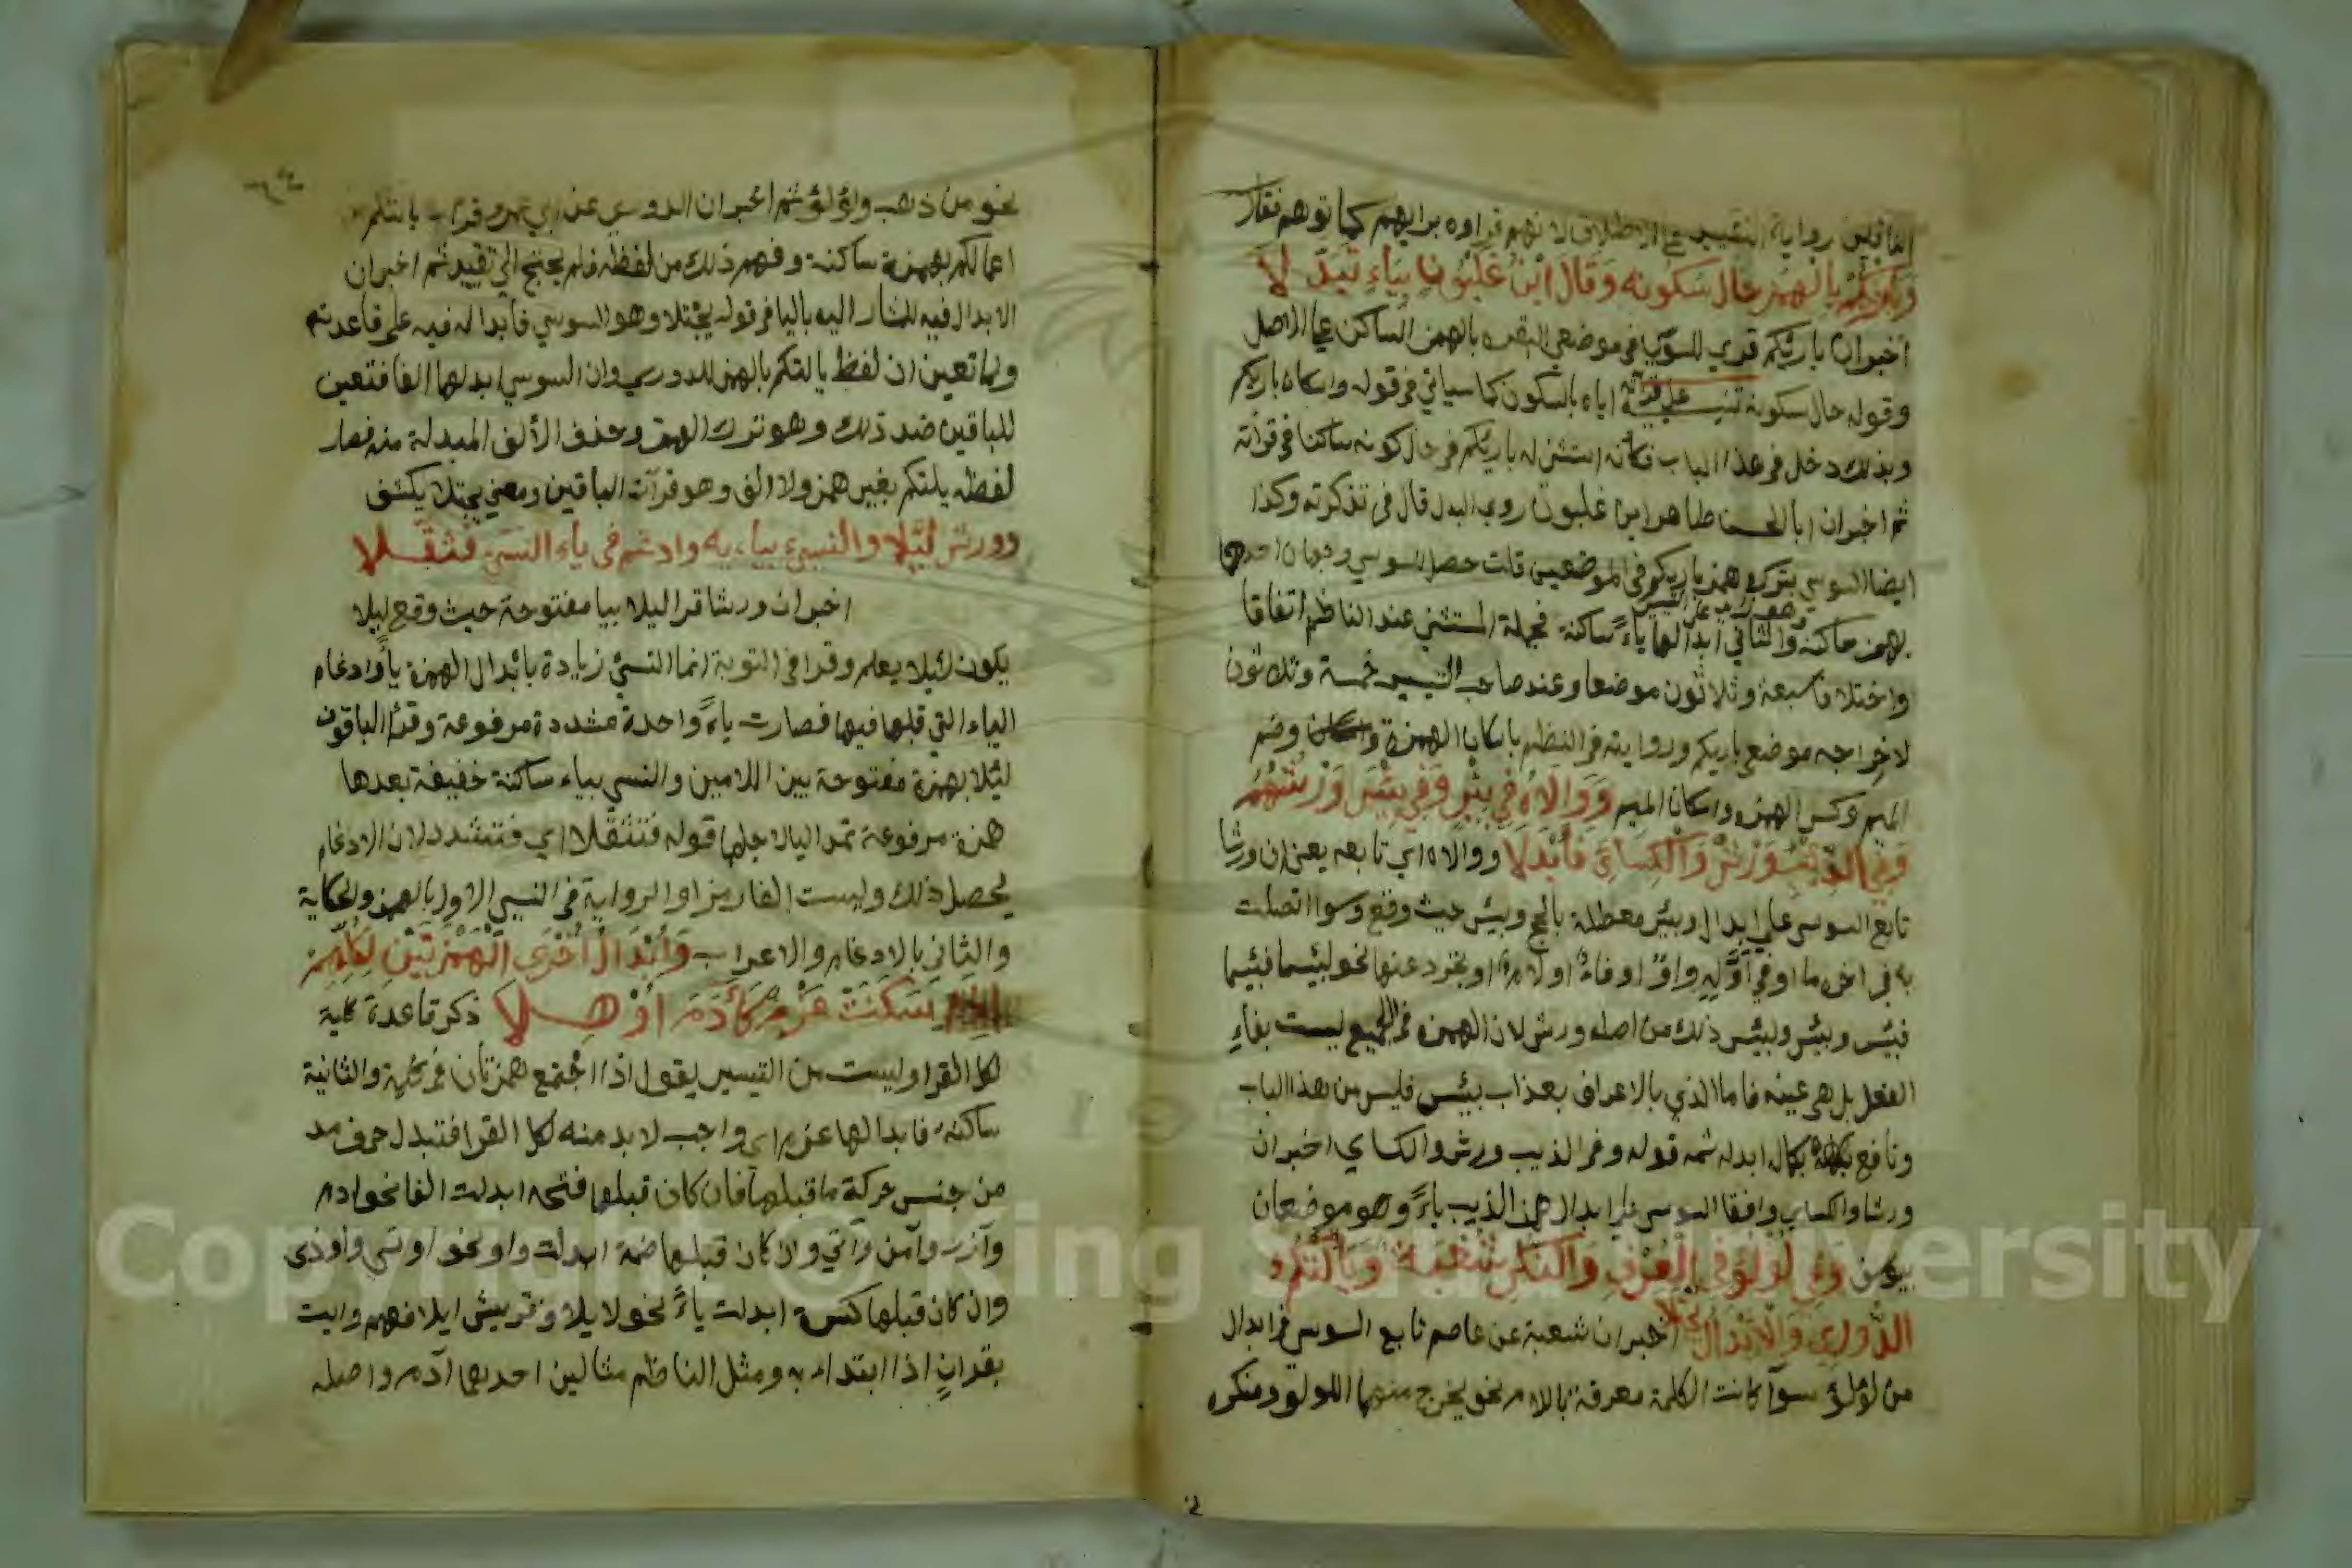 القائلين رواية التقييد على الاطلاق لانهم قراوه برايهم كما توهم فقال
وبارئكم بالهمز حال سكونه وقال ابن غلبون بياء تبدلا
اخبر ان باريكم قري للسوسي في موضعي البقره بالهمز الساكن على الاصل
وقوله حال سكونه تنبيه على قرآته اياه بالسكون كما سياتي في قوله واسكان باريكم
وبذلك دخل في هذا الباب فكانه استثنى له باريكم في حال كونه ساكنا في قرأته
ثم اخبر ان ابا الحسن طاهر ابن غلبون روى البدل قال في تذكرته وكذا
ايضا السوسي بترك همز باريكم في الموضعين قلت حصل للسوسي وجهان احدهما
بهمز ساكنة والثاني ابدالها ياء ساكنة فجملة المستثنى عند الناظم اتفاقا
واختلافا سبعة وثلاثون موضعا وعند صاحب التيسير خمسة وثلاثون
لاخراجه موضعي باريكم وروايته في النظم باسكان الهمزة وضم
الميم وكسر الهمزه واسكان الميم ووالاه في بئر وفي بئس ورشهم
وفي الذئب ورش والكسائي فأبدلا ووالاه اي تابعه يعني ان ورشا
تابع السوسي على ابدال وبئر معطلة بالحج وبيئس حيث وقع وسوا اتصلت
به في اخره ما او في أوله واو او فاء او لام او تجرد عنها نحو لبئسما فبئسما
فبئس وبئس ولبئس ذلك من اصله ورش لان الهمزه في الجميع ليست بفاء
الفعل بل هي عينه فاما الذي بالاعراف بعذاب بيئس فليس من هذا الباب
ونافع بكماله ابدله ثمه قوله وفي الذيب ورش والكساي اخبر ان
ورشا والكساي وافقا السوسي على ابدال همز الذيب ياء وهو موضعان
بيوسف وفي لؤلؤ في العرف والنكر شعبة ويألتكم
الدوري والابدال يجتلا اخبر ان شعبة عن عاصم تابع السوسي في ابدال
من لؤلؤ سوآ كانت الكلمة معرفة بالام نحو يخرج منهما اللولو ومنكره
نحو من ذهب ولؤلؤ ثم اخبر ان الدوري عن ابي عمرو قرا يالتكم من
اعمالكم بهمزة ساكنة وفهم ذلك من لفظه فلم يحتج الى تقييد ثم اخبر ان
الابدال فيه للمشار اليه باليا في قوله يجتلا وهو السوسي فابداله فيه على قاعدته
ولما تعين ان لفظ يالتكم بالهمز للدوري وان السوسي ابدلها الفا فتعين
للباقين ضد ذلك وهو ترك الهمز وحذف الألف المبدلة منه فصار
لفظه يلتكم بغير همز ولا الف وهو قرآة الباقين ومعنى يجتلا يكشف
وورش لئلا والنسيء بيائه وادغم في ياء النسي فثقلا
اخبر ان ورشا قرا ليلا بيا مفتوحة حيث وقع ليلا
يكون لئلا يعلم وقرا في التوبة انما النسئ زيادة بابدال الهمزة يآ وادغام
الياء التي قبلها فيها فصارت ياء واحدة مشددة مرفوعة وقرأ الباقون
لئلا بهمزة مفتوحة بين اللامين والنسي بياء ساكنة خفيفة بعدها
همزة مرفوعة تمد اليا لاجلها قوله فتثقلا اي فتشدد لان الادغام
يحصل ذلك وليست الفا رمزا والرواية في النسي الاول بالهمز والحكاية
والثاني بالادغام والاعراب وأبدال أخرى الهمزتين لكلهم
اذا سكنت عزم كآدم أوهلا ذكر قاعدة كلية
لكل القرا وليست من التيسير يقول اذا اجتمع همزتان في كلمة والثانية
ساكنة فابدالها عزم اي واجب لا بد منه لكل القرا فتبدل حرف مد
من جنس حركة ما قبلها فان كان قبلها فتحه ابدلت الفا نحو ادم
وآزر وآمن وآتي وان كان قبلها ضمة ابدلت واو نحو اوتي واوذي
وان كان قبلها كسرة ابدلت ياء نحو لايلاف قريش ايلافهم وايت
بقران اذا ابتداء به ومثل الناظم مثالين احدهما آدم واصله
Copyright © King Saud University